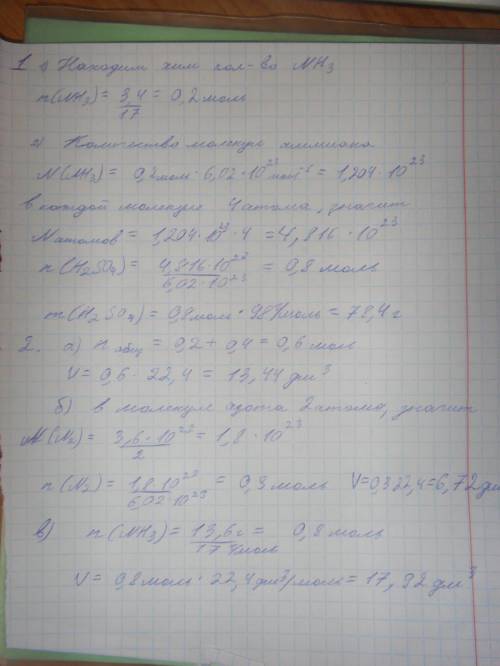 1 1) Находим хим кол-во NH3
n(NH3) = 3,4/17 = 0,2 моль
2) Количество молекул аммиака
N(NH3) = 0,2 моль · 6,02 · 10^23 моль^-1 = 1,204 · 10^23
в каждой молекуле 4 атома, значит
N атомов = 1,204 · 10^23 · 4 = 4,816 · 10^23
n(H2SO4) = 4,816 · 10^23 / 6,02 · 10^23 = 0,8 моль
m(H2SO4) = 0,8 моль · 98 г/моль = 78,4 г
2. а) n общ = 0,2 + 0,4 = 0,6 моль
V = 0,6 · 22,4 = 13,44 дм^3
б) в молекуле азота 2 атома, значит
N(N2) = 3,6 · 10^23 / 2 = 1,8 · 10^23
n(N2) = 1,8 · 10^23 / 6,02 · 10^23 = 0,3 моль V = 0,3 22,4 = 6,72 дм
в) n(NH3) = 13,6 г / 17 г/моль = 0,8 моль
V = 0,8 моль · 22,4 дм^3/моль = 17,92 дм^3